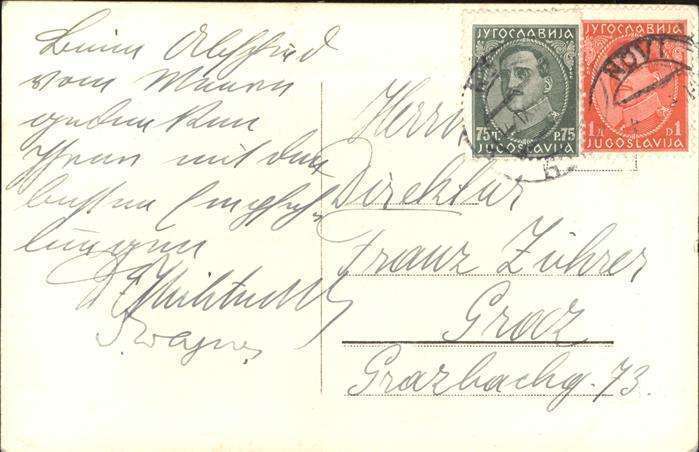 Beim Abschied
vom Meere
gedenken
Ihrer mit den
besten Empfeh-
lungen
Wagner
ЈУГОСЛАВИЈА
75 P.75
JUGOSLAVIJA
ЈУГОСЛАВИЈА
1 Д D 1
JUGOSLAVIJA
NOVI
Herrn
Direktor
Franz Zührer
Graz
Grazbachg. 73.